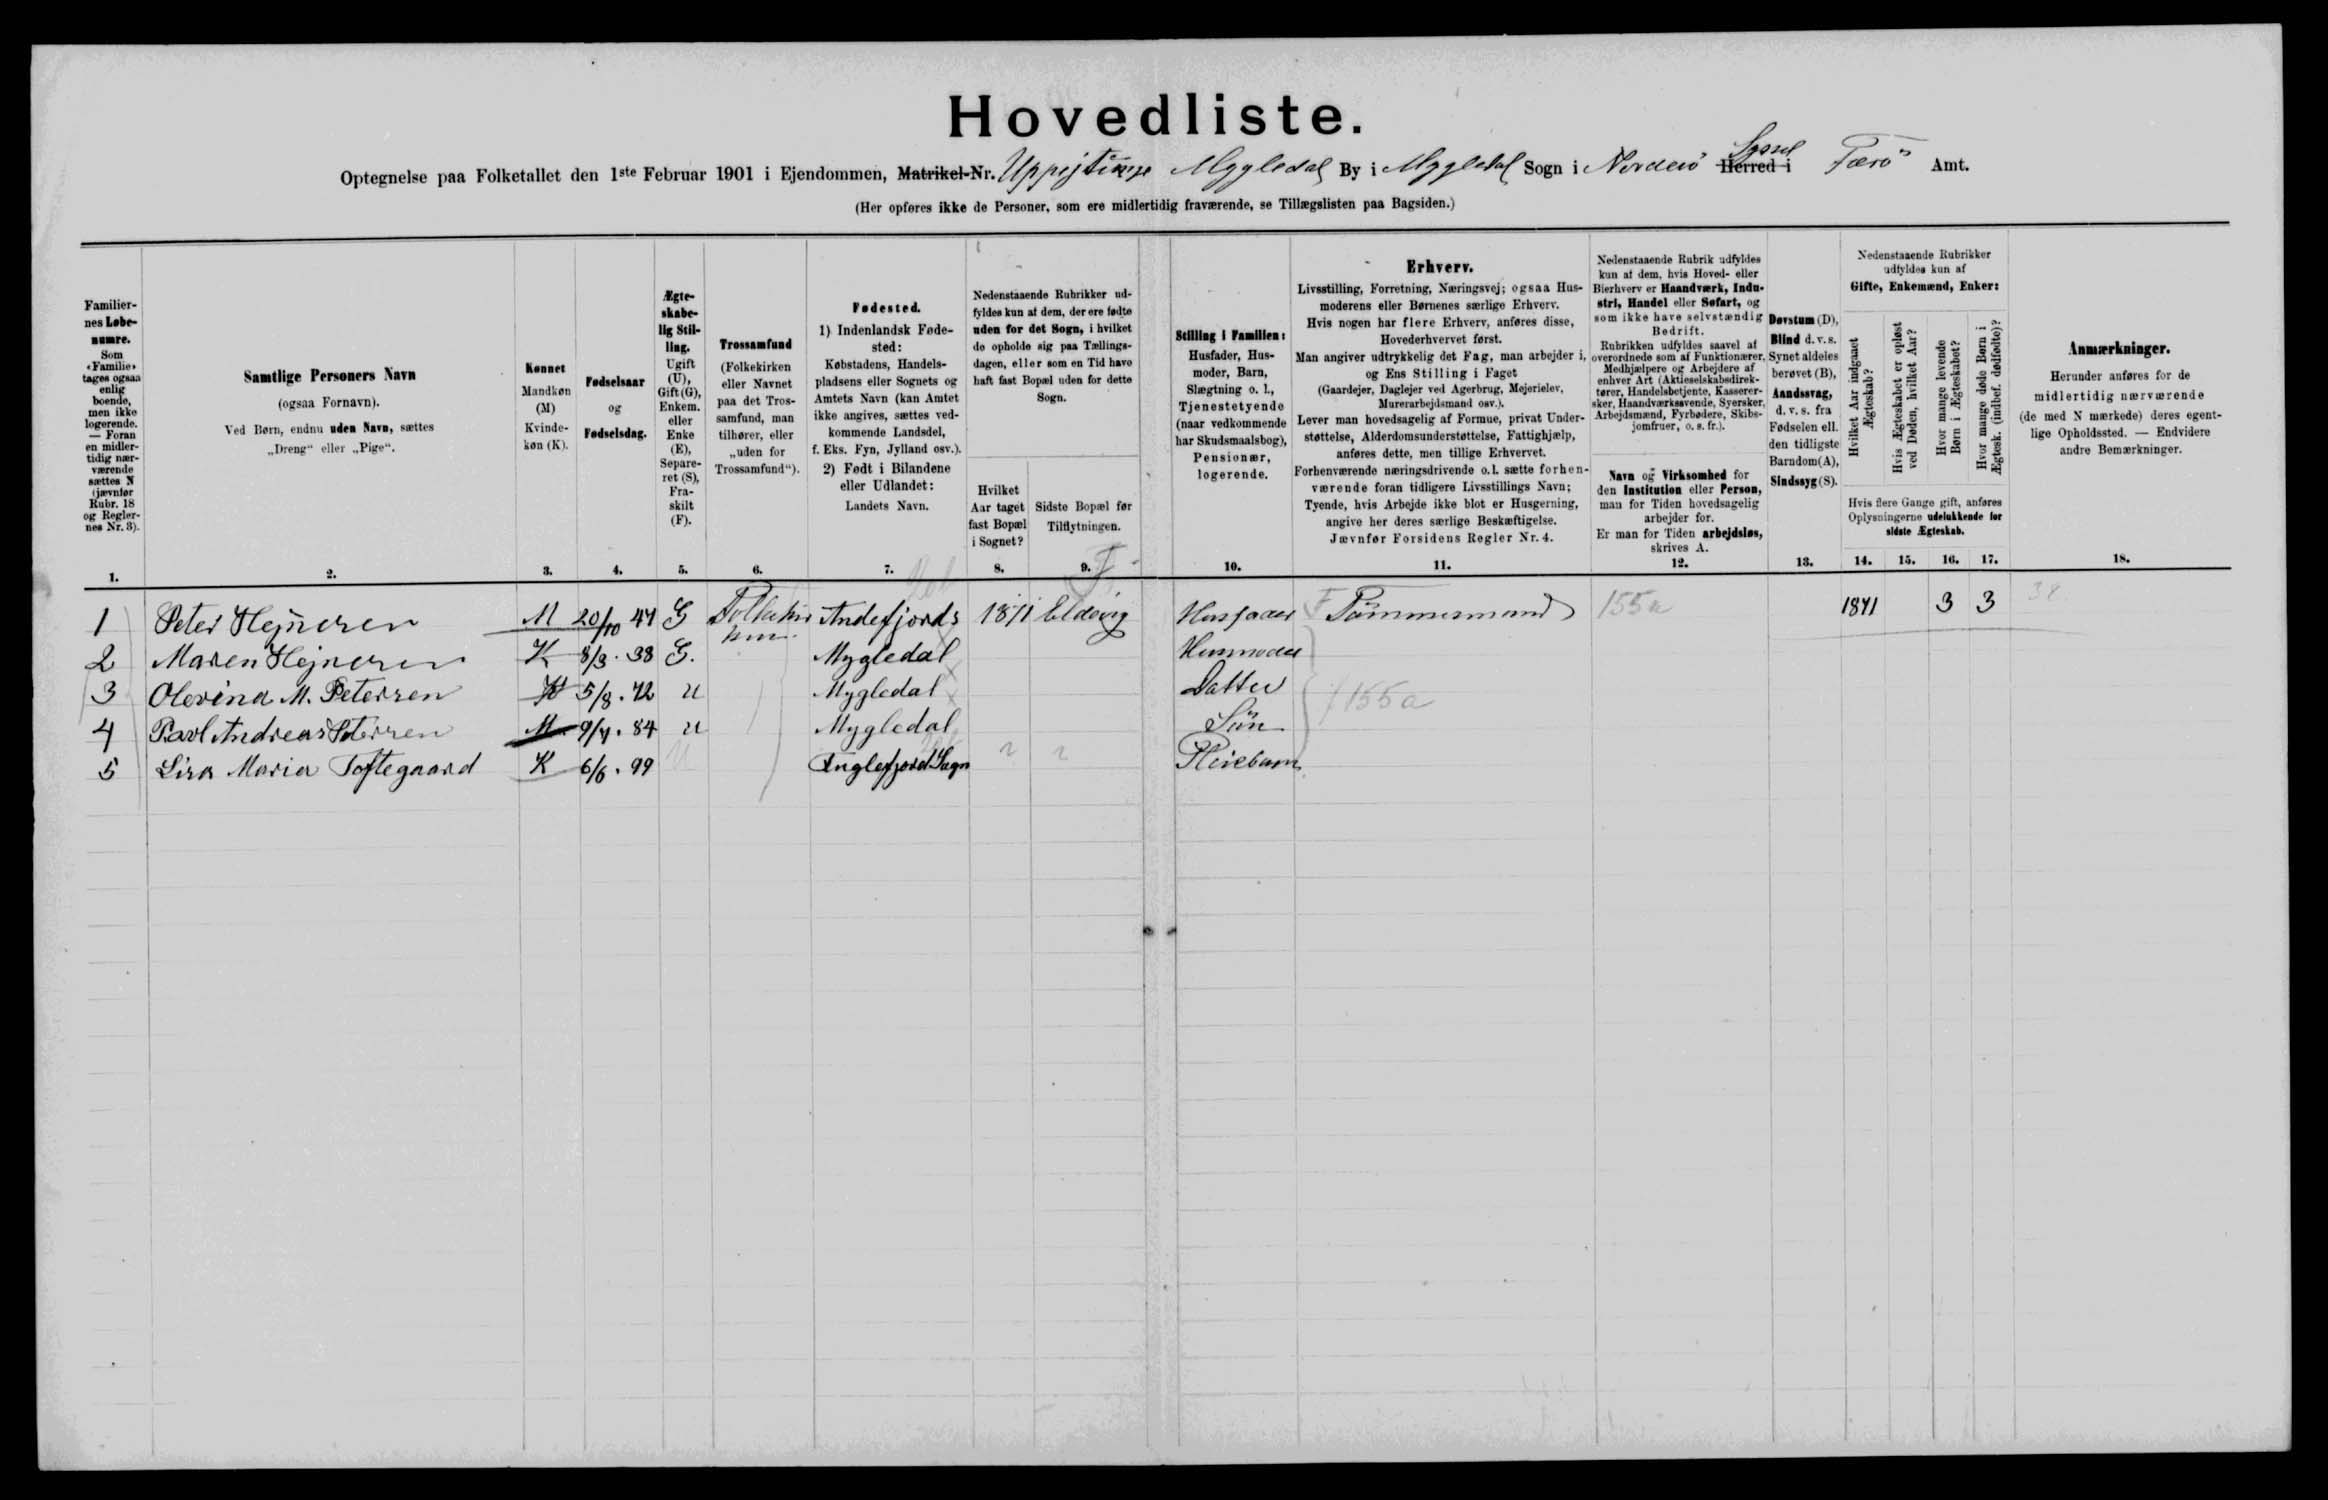 Hovedliste.
Optegnelse paa Folketallet den 1ste Februar 1901 i Ejendommen, Matrikel-Nr. Mygledal By i Mygledal Sogn i Norderö Herred i Syssel Færö Amt.
(Her opføres ikke de Personer, som ere midlertidig fraværende, se Tillægslisten paa Bagsiden.)
Familier-
nes Løbe-
numre.
Som
«Familie»
tages ogsaa
enlig
boende,
men ikke
logerende.
— Foran
en midler-
tidig nær-
værende
sættes N
(jævnfør
Rubr. 18
og Regler-
nes Nr. 3).
1.
Samtlige Personers Navn
(ogsaa Fornavn).
Ved Børn, endnu uden Navn, sættes
„Dreng“ eller „Pige“.
2.
Kønnet
Mandkøn
(M)
Kvinde-
køn (K).
3.
Fødselsaar
og
Fødselsdag.
4.
Ægte-
skabe-
lig Stil-
ling.
Ugift
(U),
Gift (G),
Enkem.
eller
Enke
(E),
Separe-
ret (S),
Fra-
skilt
(F).
5.
Trossamfund
(Folkekirken
eller Navnet
paa det Tros-
samfund, man
tilhører, eller
„uden for
Trossamfund“).
6.
Fødested.
1) Indenlandsk Føde-
sted:
Købstadens, Handels-
pladsens eller Sognets og
Amtets Navn (kan Amtet
ikke angives, sættes ved-
kommende Landsdel,
f. Eks. Fyn, Jylland osv.).
2) Født i Bilandene
eller Udlandet:
Landets Navn.
7.
Nedenstaaende Rubrikker ud-
fyldes kun af dem, der ere fødte
uden for det Sogn, i hvilket
de opholde sig paa Tællings-
dagen, eller som en Tid have
haft fast Bopæl uden for dette
Sogn.
Hvilket
Aar taget
fast Bopæl
i Sognet?
8.
Sidste Bopæl før
Tilflytningen.
9.
Stilling i Familien:
Husfader, Hus-
moder, Barn,
Slægtning o. l.,
Tjenestetyende
(naar vedkommende
har Skudsmaalsbog),
Pensionær,
logerende.
10.
Erhverv.
Livsstilling, Forretning, Næringsvej; ogsaa Hus-
moderens eller Børnenes særlige Erhverv.
Hvis nogen har flere Erhverv, anføres disse,
Hovederhvervet først.
Man angiver udtrykkelig det Fag, man arbejder i,
og Ens Stilling i Faget
(Gaardejer, Daglejer ved Agerbrug, Mejerielev,
Murerarbejdsmand osv.).
Lever man hovedsagelig af Formue, privat Under-
støttelse, Alderdomsunderstøttelse, Fattighjælp,
anføres dette, men tillige Erhvervet.
Forhenværende næringsdrivende o. l. sætte forhen-
værende foran tidligere Livsstillings Navn;
Tyende, hvis Arbejde ikke blot er Husgerning,
angive her deres særlige Beskæftigelse.
Jævnfør Forsidens Regler Nr. 4.
11.
Nedenstaaende Rubrik udfyldes
kun af dem, hvis Hoved- eller
Bierhverv er Haandværk, Indu-
stri, Handel eller Søfart, og
som ikke have selvstændig
Bedrift.
Rubrikken udfyldes saavel af
overordnede som af Funktionærer,
Medhjælpere og Arbejdere af
enhver Art (Aktieselskabsdirek-
tører, Handelsbetjente, Kasserer-
sker, Haandværkssvende, Syersker,
Arbejdsmænd, Fyrbødere, Skibs-
jomfruer, o. s. fr.).
Navn og Virksomhed for
den Institution eller Person,
man for Tiden hovedsagelig
arbejder for.
Er man for Tiden arbejdsløs,
skrives A.
12.
Døvstum (D),
Blind d. v. s.
Synet aldeles
berøvet (B),
Aandssvag,
d. v. s. fra
Fødselen ell.
den tidligste
Barndom (A),
Sindssyg (S).
13.
Nedenstaaende Rubrikker
udfyldes kun af
Gifte, Enkemænd, Enker:
Hvilket Aar indgaaet
Ægteskab?
Hvis Ægteskabet er opløst
ved Døden, hvilket Aar?
Hvor mange levende
Børn i Ægteskabet?
Hvor mange døde Børn i
Ægtesk. (indbef. dødfødte)?
Hvis flere Gange gift, anføres
Oplysningerne udelukkende for
sidste Ægteskab.
14. 15. 16. 17.
Anmærkninger.
Herunder anføres for de
midlertidig nærværende
(de med N mærkede) deres egent-
lige Opholdssted. — Endvidere
andre Bemærkninger.
18.
1 Peter Hejnesen M 20/10 47 G Andefjords 1871 Eldevig Husfader F Tömmermand 155a 1871 3 3
2 Maren Hejnesen K 8/3. 38 G. Mygledal Husmoder
3 Olevina M. Petersen K 5/8. 72 U Mygledal Datter 155a
4 Pavl Andreas Petersen M 9/4. 84 U Mygledal Sön
5 Lisa Maria Toftegaard K 6/6. 99 U Fuglefjord Sogn Pleiebarn